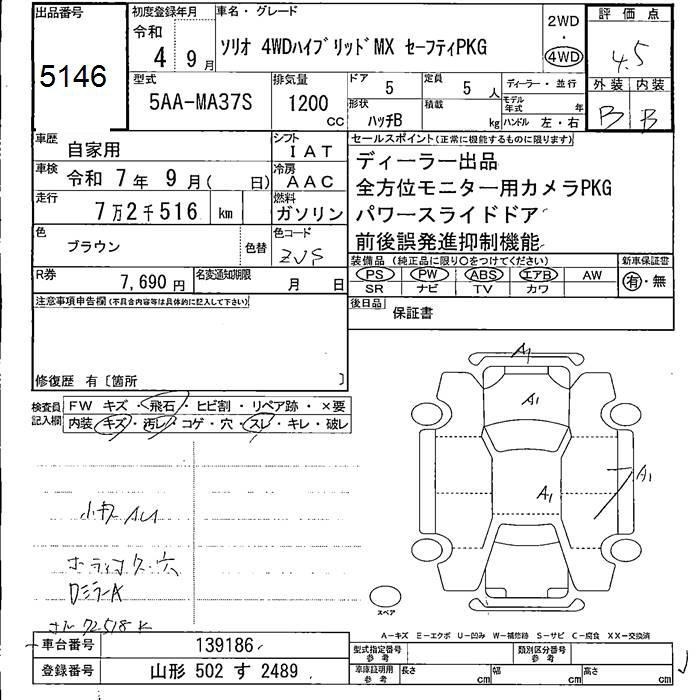 出品番号
5146
初度登録年月
令和
4 9月
車名・グレード
ソリオ 4WDハイブリッドMX セーフティPKG
2WD
・
4WD
評価点
4.5
外装 内装
B B
型式
5AA-MA37S
排気量
1200
CC
ドア
5
定員
5 人
形状
ハッチB
積載
kg
ディーラー・並行
モデル年式 年
ハンドル 左・右
車歴
自家用
シフト
IAT
車検
令和 7年 9月( 日)
冷房
AAC
走行
7万2千516 km
燃料
ガソリン
色
ブラウン
色替
色コード
R券
7,690円
名変通知期限
月 日
セールスポイント(正常に機能するものに限ります)
ディーラー出品
全方位モニター用カメラPKG
パワースライドドア
前後誤発進抑制機能
装備品(純正品に限り○をつけてください)
PS PW ABS エアB AW
SR ナビ TV カワ
新車保証書
有・無
後日品
保証書
注意事項申告欄(不具合内容等は具体的に記入して下さい)
修復歴 有〔箇所 〕
検査員記入欄
FW キズ・飛石・ヒビ割・リペア跡・×要
内装 キズ・汚レ・コゲ・穴・スレ・キレ・破レ
A1
A1
A1
A1
小キズAU
DミラーA
72518K
スペア
A-キズ E-エクボ U-凹み W-補修跡 S-サビ C-腐食 XX-交換済
車台番号
139186
登録番号
山形 502 す 2489
型式指定番号
参考
類別区分番号
参考
車庫証明用
参考
長さ cm
幅 cm
高さ cm